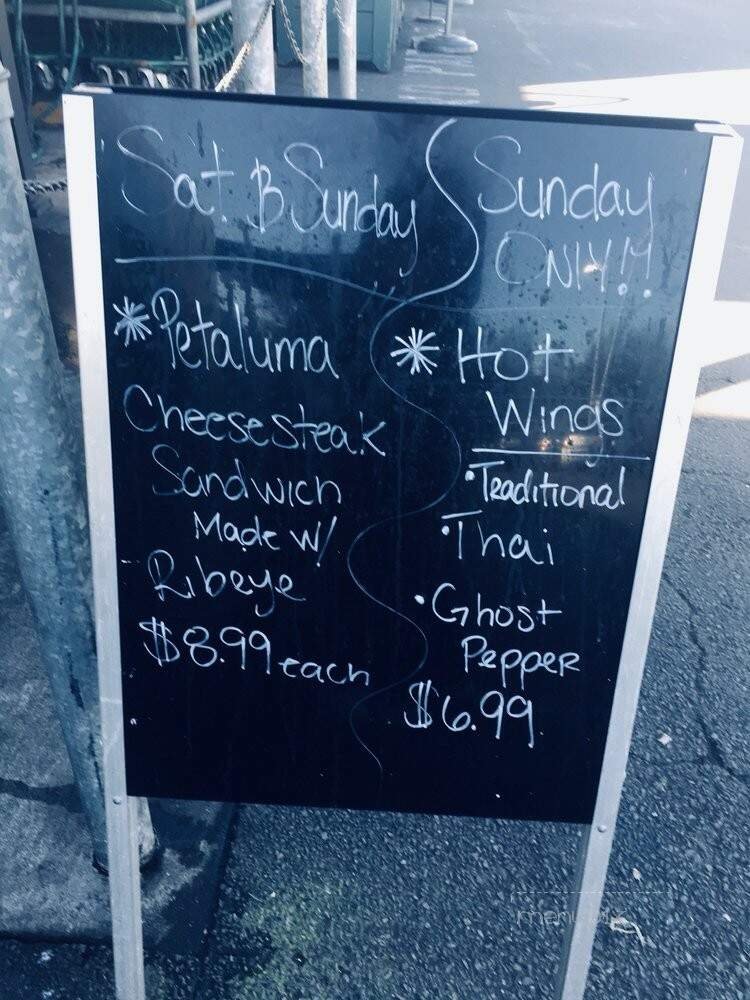 Sat & Sunday
* Petaluma
Cheesesteak
Sandwich
Made w/
Ribeye
$8.99 each
Sunday
ONlY!!
* Hot
Wings
• Traditional
• Thai
• Ghost
Pepper
$6.99